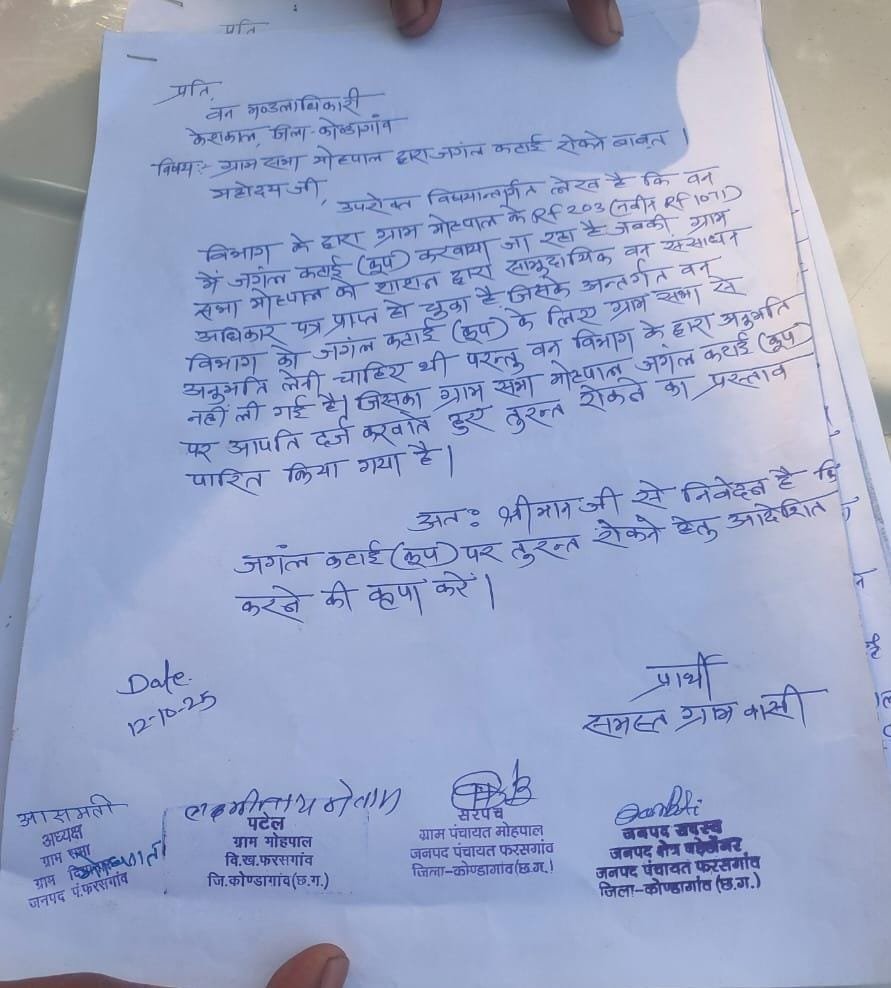 प्रति
प्रति,
वन मण्डलाधिकारी
केशकाल, जिला-कोण्डागांव
विषय:- ग्राम सभा मोहपाल द्वारा जगंल कटाई रोकने बाबत।
महोदय जी,
उपरोक्त विषयान्तर्गत लेख है कि वन
विभाग के द्वारा ग्राम मोहपाल के Rf 203 (नवीन Rf 1071)
में जगंल कटाई (कूप) करवाया जा रहा है जबकी ग्राम
सभा मोहपाल को शासन द्वारा सामुदायिक वन संसाधन
अधिकार पत्र प्राप्त हो चुका है, जिसके अन्तर्गत वन
विभाग को जगंल कटाई (कूप) के लिए ग्राम सभा से
अनुमति लेनी चाहिए थी परन्तु वन विभाग के द्वारा अनुमति
नहीं ली गई है। जिसका ग्राम सभा मोहपाल जगंल कटाई (कूप)
पर आपति दर्ज करवाते हुए तुरन्त रोकने का प्रस्ताव
पारित किया गया है।
अतः श्रीमान जी से निवेदन है कि
जगंल कटाई (कूप) पर तुरन्त रोकने हेतु आदेशित
करने की कृपा करें।
Date.
12-10-25
प्रार्थी
समस्त ग्राम वासी
आसमती
अध्यक्ष
ग्राम सभा
ग्राम
जनपद पं.फरसगांव
पटेल
ग्राम मोहपाल
वि.ख.फरसगांव
जि.कोण्डागांव(छ.ग.)
सरपंच
ग्राम पंचायत मोहपाल
जनपद पंचायत फरसगांव
जिला-कोण्डागांव(छ.ग.)
जनपद सदस्य
जनपद क्षेत्र
जनपद पंचायत फरसगांव
जिला-कोण्डागांव (छ.ग.)